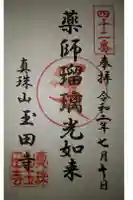 四十二番
奉拝 令和二年七月十日
薬師瑠璃光如来
真珠山 玉田寺